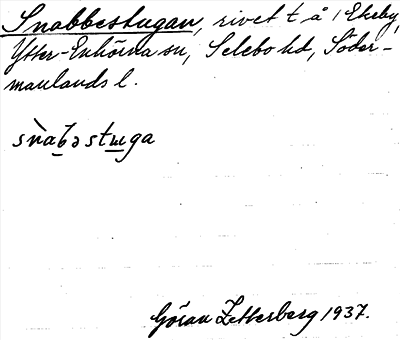 Snabbestugan, rivet t å i Ekeby,
Ytter-Enhörna sn, Selebo hd, Söder-
manlands l.
snabəstuga
Göran Zetterberg 1937.